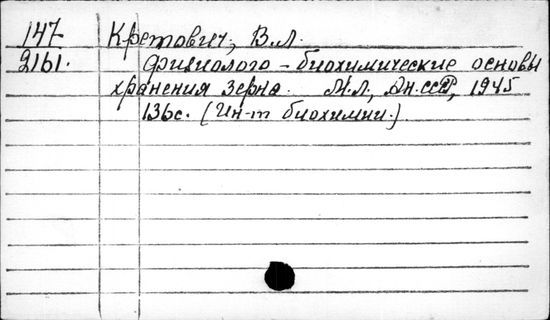 147 Кретович, В.Л.
2161. Физиолого-биохимические основы
хранения зерна. М.Л., Ан.СССР, 1945
136с. (Ин-т биохимии.)